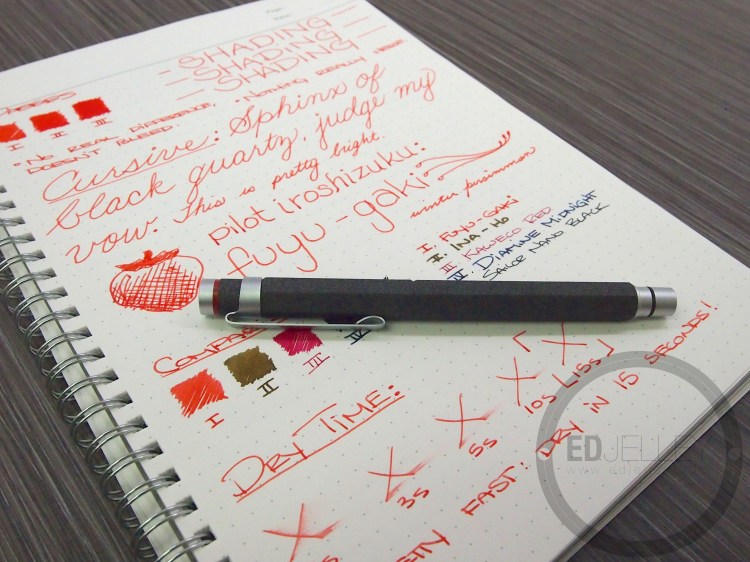 - SHADING -
- SHADING -
- SHADING -
I II III
"No REAL DIFFERENCE, NOTHING REALLY
DOESN'T BLEED.
Cursive: Sphinx of
black quartz, judge my
vow. This is pretty bright.
pilot iroshizuku:
fuyu-gaki
winter persimmon
I. FUYU-GAKI
II. INA-HO
III KAWECO RED
IV. DIAMINE MIDNIGHT
SAILOR NANO BLACK
I II III
DRY TIME:
3s 5s 10s 15s
FAST: DRY IN 15 SECONDS!
EDJELLEY